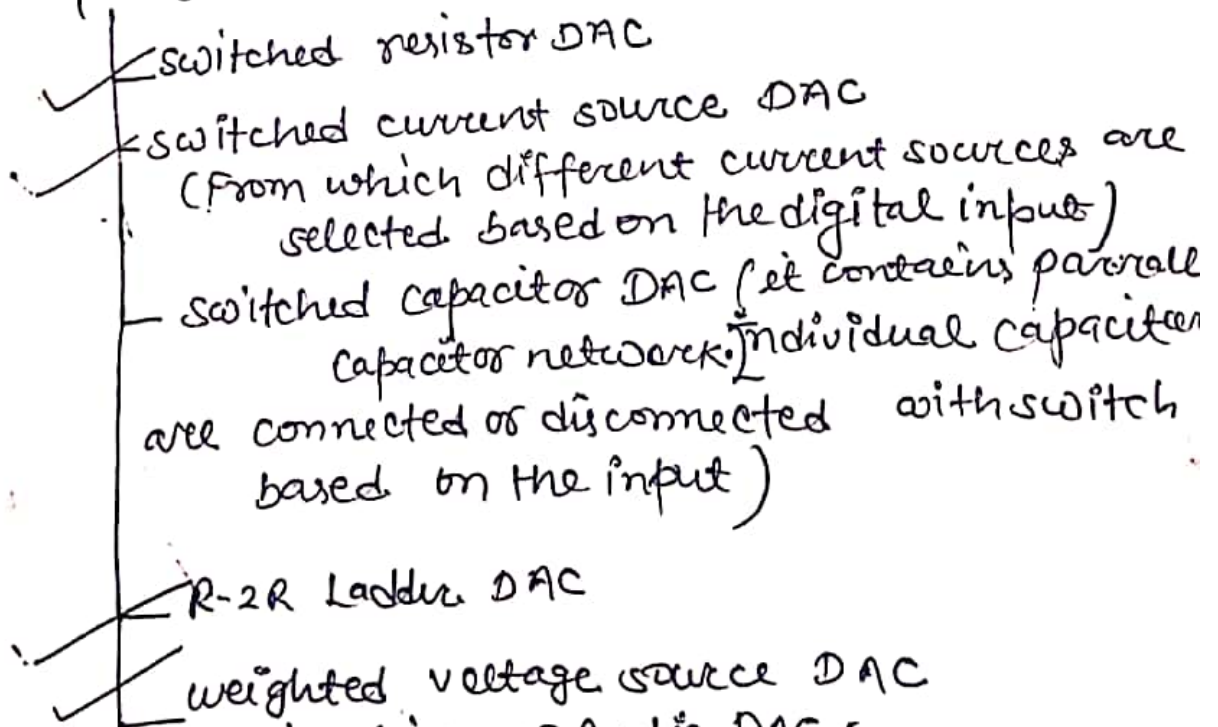 switched resistor DAC
switched current source DAC
(From which different current sources are
selected based on the digital input)
switched capacitor DAC (it contains parrale
capacitor network. Individual capacitor
are connected or disconnected with switch
based on the input)
R-2R Ladder DAC
weighted voltage source DAC
DAC